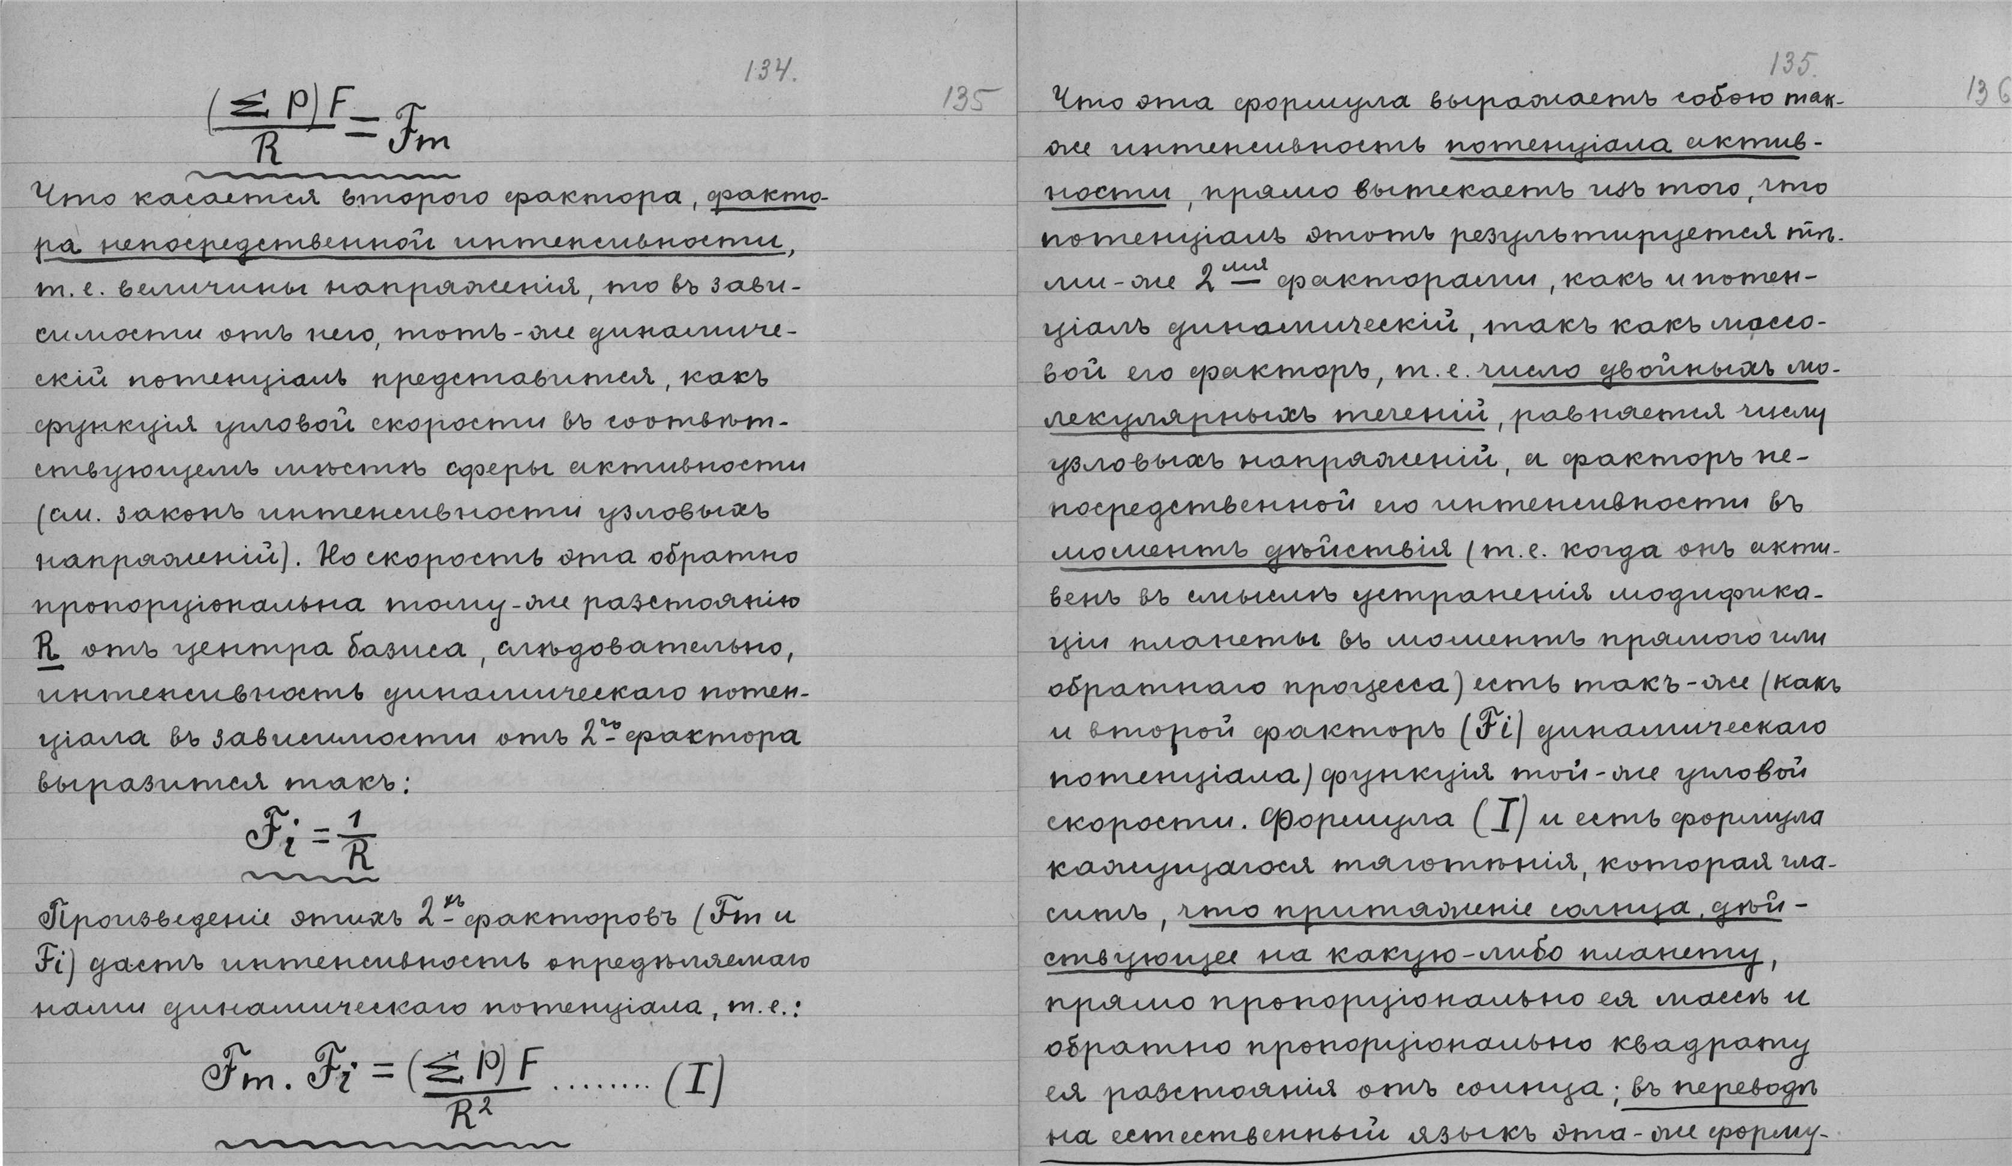 134.
135
(Σ p) F / R = Fm
Что касается второго фактора, факто-
ра непосредственной интенсивности,
т. е. величины напряженія, то въ зави-
симости отъ него, тотъ-же динамиче-
скій потенціалъ представится, какъ
функція угловой скорости въ соотвѣт-
ствующемъ мѣстѣ сферы активности
(см. законъ интенсивности узловыхъ
напряженій). Но скорость эта обратно
пропорціональна тому-же разстоянію
R отъ центра базиса, слѣдовательно,
интенсивность динамическаго потен-
ціала въ зависимости отъ 2го фактора
выразится такъ:
Fi = 1/R
Произведеніе этихъ 2хъ факторовъ (Fm и
Fi) дастъ интенсивность опредѣляемаго
нами динамическаго потенціала, т. е.:
Fm. Fi = (Σ p) F / R² ........ (I)
135.
136
Что эта формула выражаетъ собою так-
же интенсивность потенціала актив-
ности, прямо вытекаетъ изъ того, что
потенціалъ этотъ результируется тѣ-
ми-же 2мя факторами, какъ и потен-
ціалъ динамическій, такъ какъ массо-
вой его факторъ, т. е. число двойныхъ мо-
лекулярныхъ теченій, равняется числу
узловыхъ напряженій, а факторъ не-
посредственной его интенсивности въ
моментъ дѣйствія (т. е. когда онъ акти-
венъ въ смыслѣ устраненія модифика-
ціи планеты въ моментъ прямого или
обратнаго процесса) есть такъ-же (какъ
и второй факторъ (Fi) динамическаго
потенціала) функція той-же угловой
скорости. Формула (I) и есть формула
кажущагося тяготѣнія, которая гла-
ситъ, что притяженіе солнца, дѣй-
ствующее на какую-либо планету,
прямо пропорціонально ея массѣ и
обратно пропорціонально квадрату
ея разстоянія отъ солнца; въ переводѣ
на естественный языкъ эта-же форму-